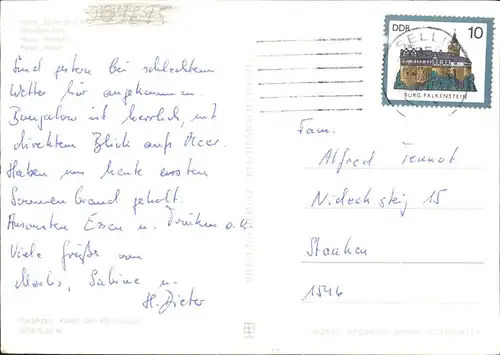 Sind gestern bei schlechtem
Wetter hier angekommen.
Bungalow ist herrlich, mit
direktem Blick aufs Meer.
Haben uns heute ersten
Sonnenbrand geholt.
Ansonsten Essen u. Trinken o.k.
Viele Grüße von
Sabine u.
H. Dieter
DDR 10
SELLIN
BURG FALKENSTEIN
Fam.
Alfred Tennot
Nideck steig 15
Staaken
1546